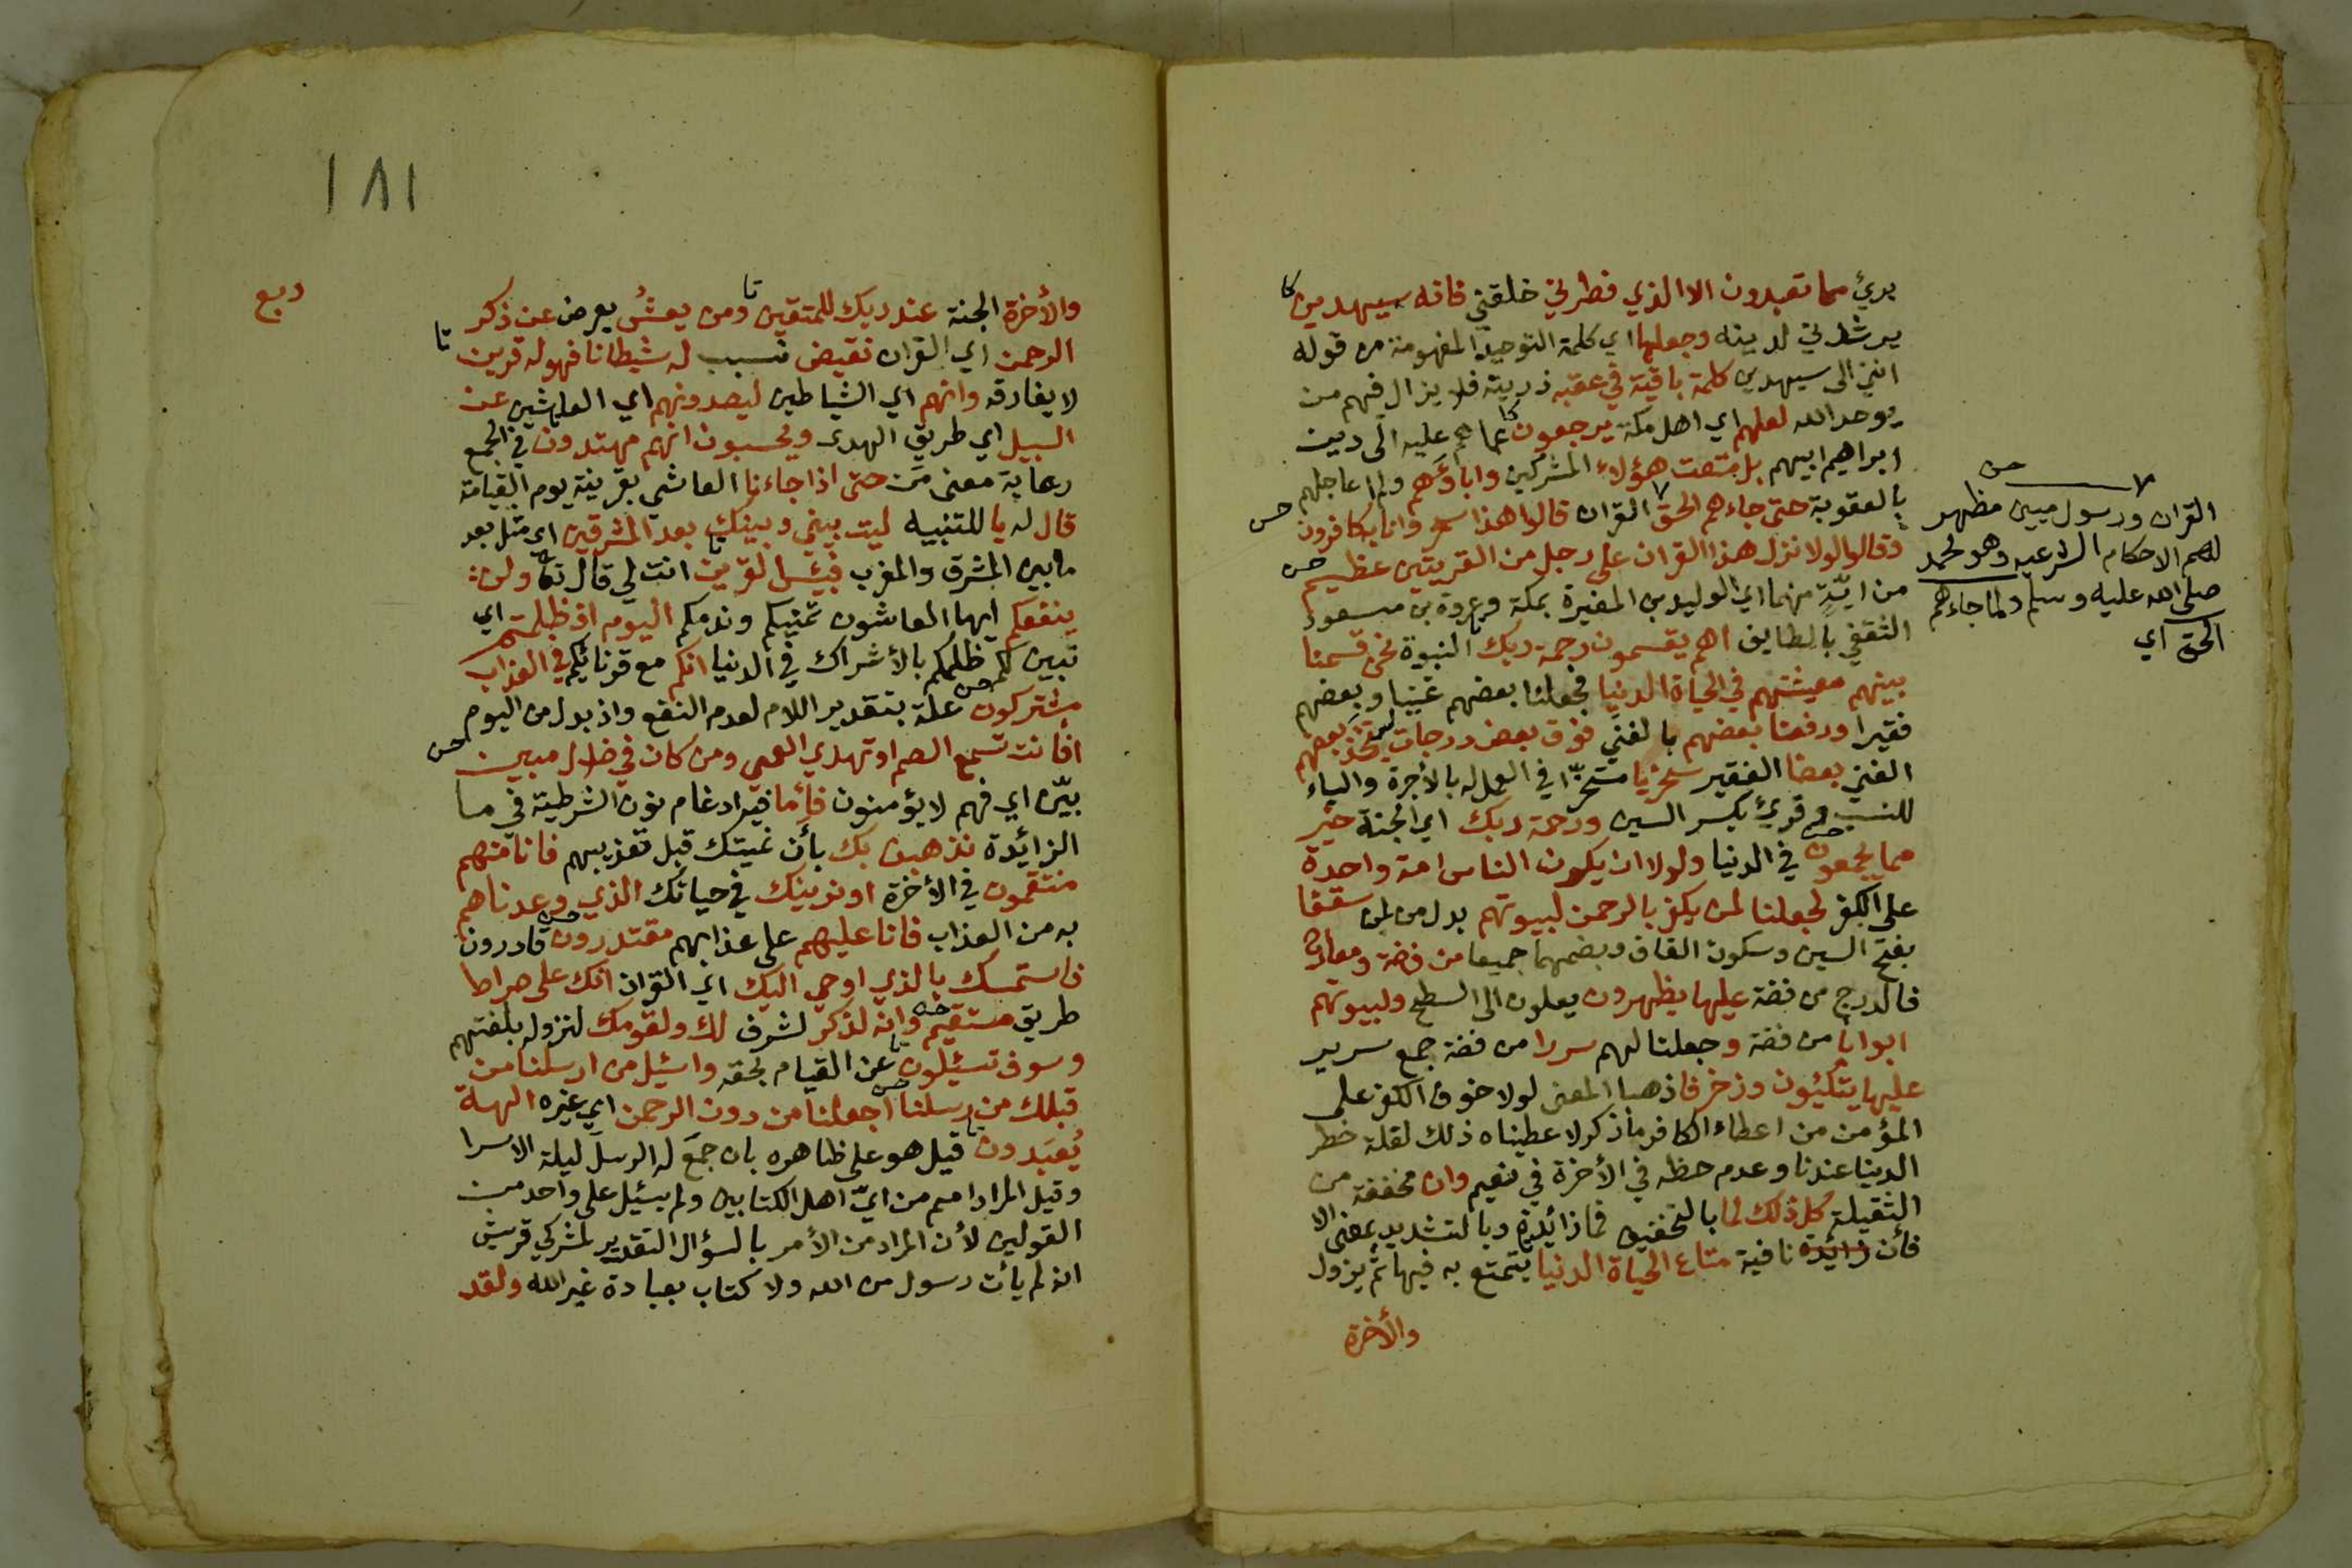 بريء مما تعبدون الا الذي فطرني خلقني فانه سيهدين كا
يرشدني لدينه وجعلها اي كلمة التوحيد المفهومة من قوله
انني الى سيهدين كلمة باقية في عقبه ذريته فلا يزال فيهم من
يوحد الله لعلهم اي اهل مكة يرجعون كا عما هم عليه الى دين
ابراهيم ابيهم بل متعت هؤلاء المشركين واباؤهم ولم اعاجلهم
بالعقوبة حتى جاءهم الحق القران قالوا هذا سحر وانا به كافرون حس
وقالوا لولا نزل هذا القران على رجل من القريتين عظيم حس
من ايّةٍ منهما اي الوليد بن المغيرة بمكة وعروة بن مسعود
الثقفي بالطايف اهم يقسمون رحمة ربك النبوة نحن قسمنا
بينهم معيشتهم في الحياة الدنيا فجعلنا بعضهم غنيا وبعضهم
فقيرا ورفعنا بعضهم بالغني فوق بعض درجات ليتخذ بعضهم
الغني بعضا الفقير سخريا مسخرّا في العمل له بالأجرة والياء
للنسب وقريء بكسر السين ورحمة ربك اي الجنة خير
مما يجمعون حس في الدنيا ولولا ان يكون الناس امة واحدة
على الكفر لجعلنا لمن يكفر بالرحمن لبيوتهم بدل من لمن سقفا
بفتح السين وسكون القاف وبضمهما جميعا من فضة ومعارج
فالدرج من فضة عليها يظهرون يعلون الى السطح ولبيوتهم
ابوابا من فضة وجعلنا لهم سررا من فضة جمع سرير
عليها يتكئون وزخرفا ذهبا المعنى لولا خوف الكفر على
المؤمن من اعطاء الكافر ما ذكر لاعطيناه ذلك لقلة خطر
الدنيا عندنا وعدم حظه في الأخرة في نعيم وان مخففة من
الثقيلة كل ذلك لما بالتخفيف فما زائدة وبالتشديد بمعنى الا
فأن زائدة نافية متاع الحياة الدنيا يتمتع به فيها ثم يزول
والأخرة
حس
القران ورسول مبين مظهر
لهم الاحكام الشرعيه وهو محمد
صلى الله عليه وسلم ولما جاءهم
الحق اي
١٨١
ربع
والأخرة الجنة عند ربك للمتقين تا ومن يعشُ يعرض عن ذكر
الرحمن اي القران نقيض نسبب له شيطانا فهو له قرين تا
لا يفارقه وانهم اي الشياطين ليصدونهم اي العاشين عن
السبيل اي طريق الهدى ويحسبون انهم مهتدون في الجمع
رعاية معنى مَن حتى اذا جاءنا العاشي بقرينه يوم القيامة
قال له يا للتنبيه ليت بيني وبينك بعد المشرقين اي مثل بعد
ما بين المشرق والمغرب فبئس القرين تا انت لي قال تعالى ولن
ينفعكم ايها العاشون تمنيكم وندمكم اليوم اذ ظلمتم اي
تبين لكم ظلمكم بالأشراك في الدنيا انكم مع قرنائكم في العذاب
مشتركون حس علة بتقدير اللام لعدم النفع واذ بدل من اليوم
أفأنت تسمع الصم او تهدي العمي ومن كان في ضلال مبين حس
بيّن اي فهم لا يؤمنون فإما فيه ادغام نون الشرطية في ما
الزائدة نذهبن بك بأن نميتك قبل تعذيبهم فانا منهم
منتقمون في الأخرة او نرينك في حياتك الذي وعدناهم
به من العذاب فانا عليهم على عذابهم مقتدرون حس قادرون
فاستمسك بالذي اوحي اليك اي القران انك على صراط
طريق مستقيم حس وانه لذكر لشرف لك ولقومك لنزوله بلغتهم
وسوف تسئلون تا عن القيام بحقه واسئل من ارسلنا من
قبلك من رسلنا حس اجعلنا من دون الرحمن اي غيره الهة
يُعبَدون تا قيل هو على ظاهره بان جمعَ له الرسلَ ليلة الاسرا
وقيل المراد امم من ايّ اهل الكتابين ولم يسئل على واحد من
القولين لأن المراد من الأمر بالسؤال التقدير لمشركي قريش
انه لم يأت رسول من الله ولا كتاب بعبادة غير الله ولقد